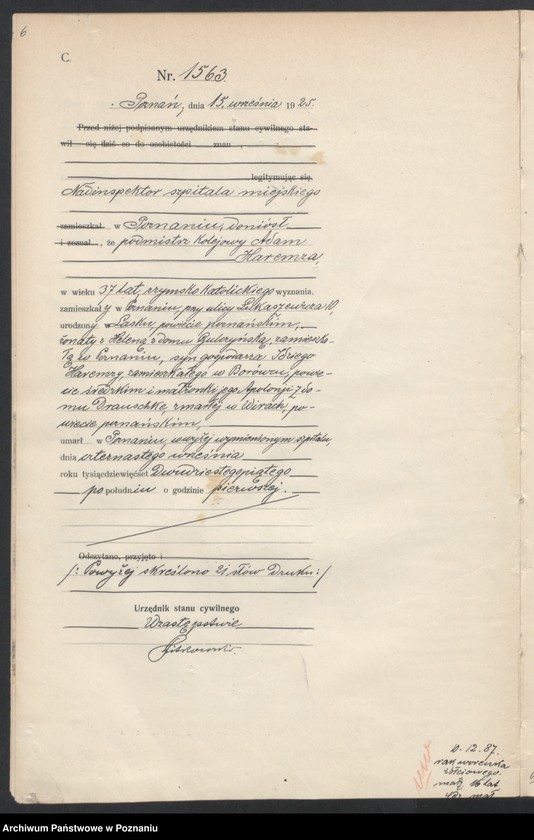 6
C.
Nr. 1563.
Poznań, dnia 15. września 1925.
Przed niżej podpisanym urzędnikiem stanu cywilnego sta-
wił się dziś co do osobistości znan ,
legitymując się
Nadinspektor szpitala miejskiego
zamieszkał w Poznaniu, doniósł
i zeznał , że podmistrz kolejowy Adam
Haremza,
w wieku 37 lat, rzymsko katolickiego wyznania,
zamieszkały w Poznaniu, przy ulicy Łukaszewicza 10,
urodzony w Lasku, powiecie poznańskim,
żonaty z Heleną z domu Gulczyńską, zamieszka-
łą w Poznaniu, syn gospodarza Idziego
Haremzy, zamieszkałego w Borówcu, powie-
cie średzkim i małżonki jego Apolonji z do-
mu Drauschke, zmarłej w Wirach, po-
wiecie poznańskim,
umarł w Poznaniu, w wyżej wymienionym szpitalu,
dnia czternastego września
roku tysiącdziewięćset Dwudziestegopiątego
po południu o godzinie pierwszej.
Odczytano, przyjęto i
/: Powyżej skreślono 21 słów druku :/
Urzędnik stanu cywilnego
W zastępstwie
12.87.
rak woreczka
żółciowego.
małż 16 lat
Archiwum Państwowe w Poznaniu